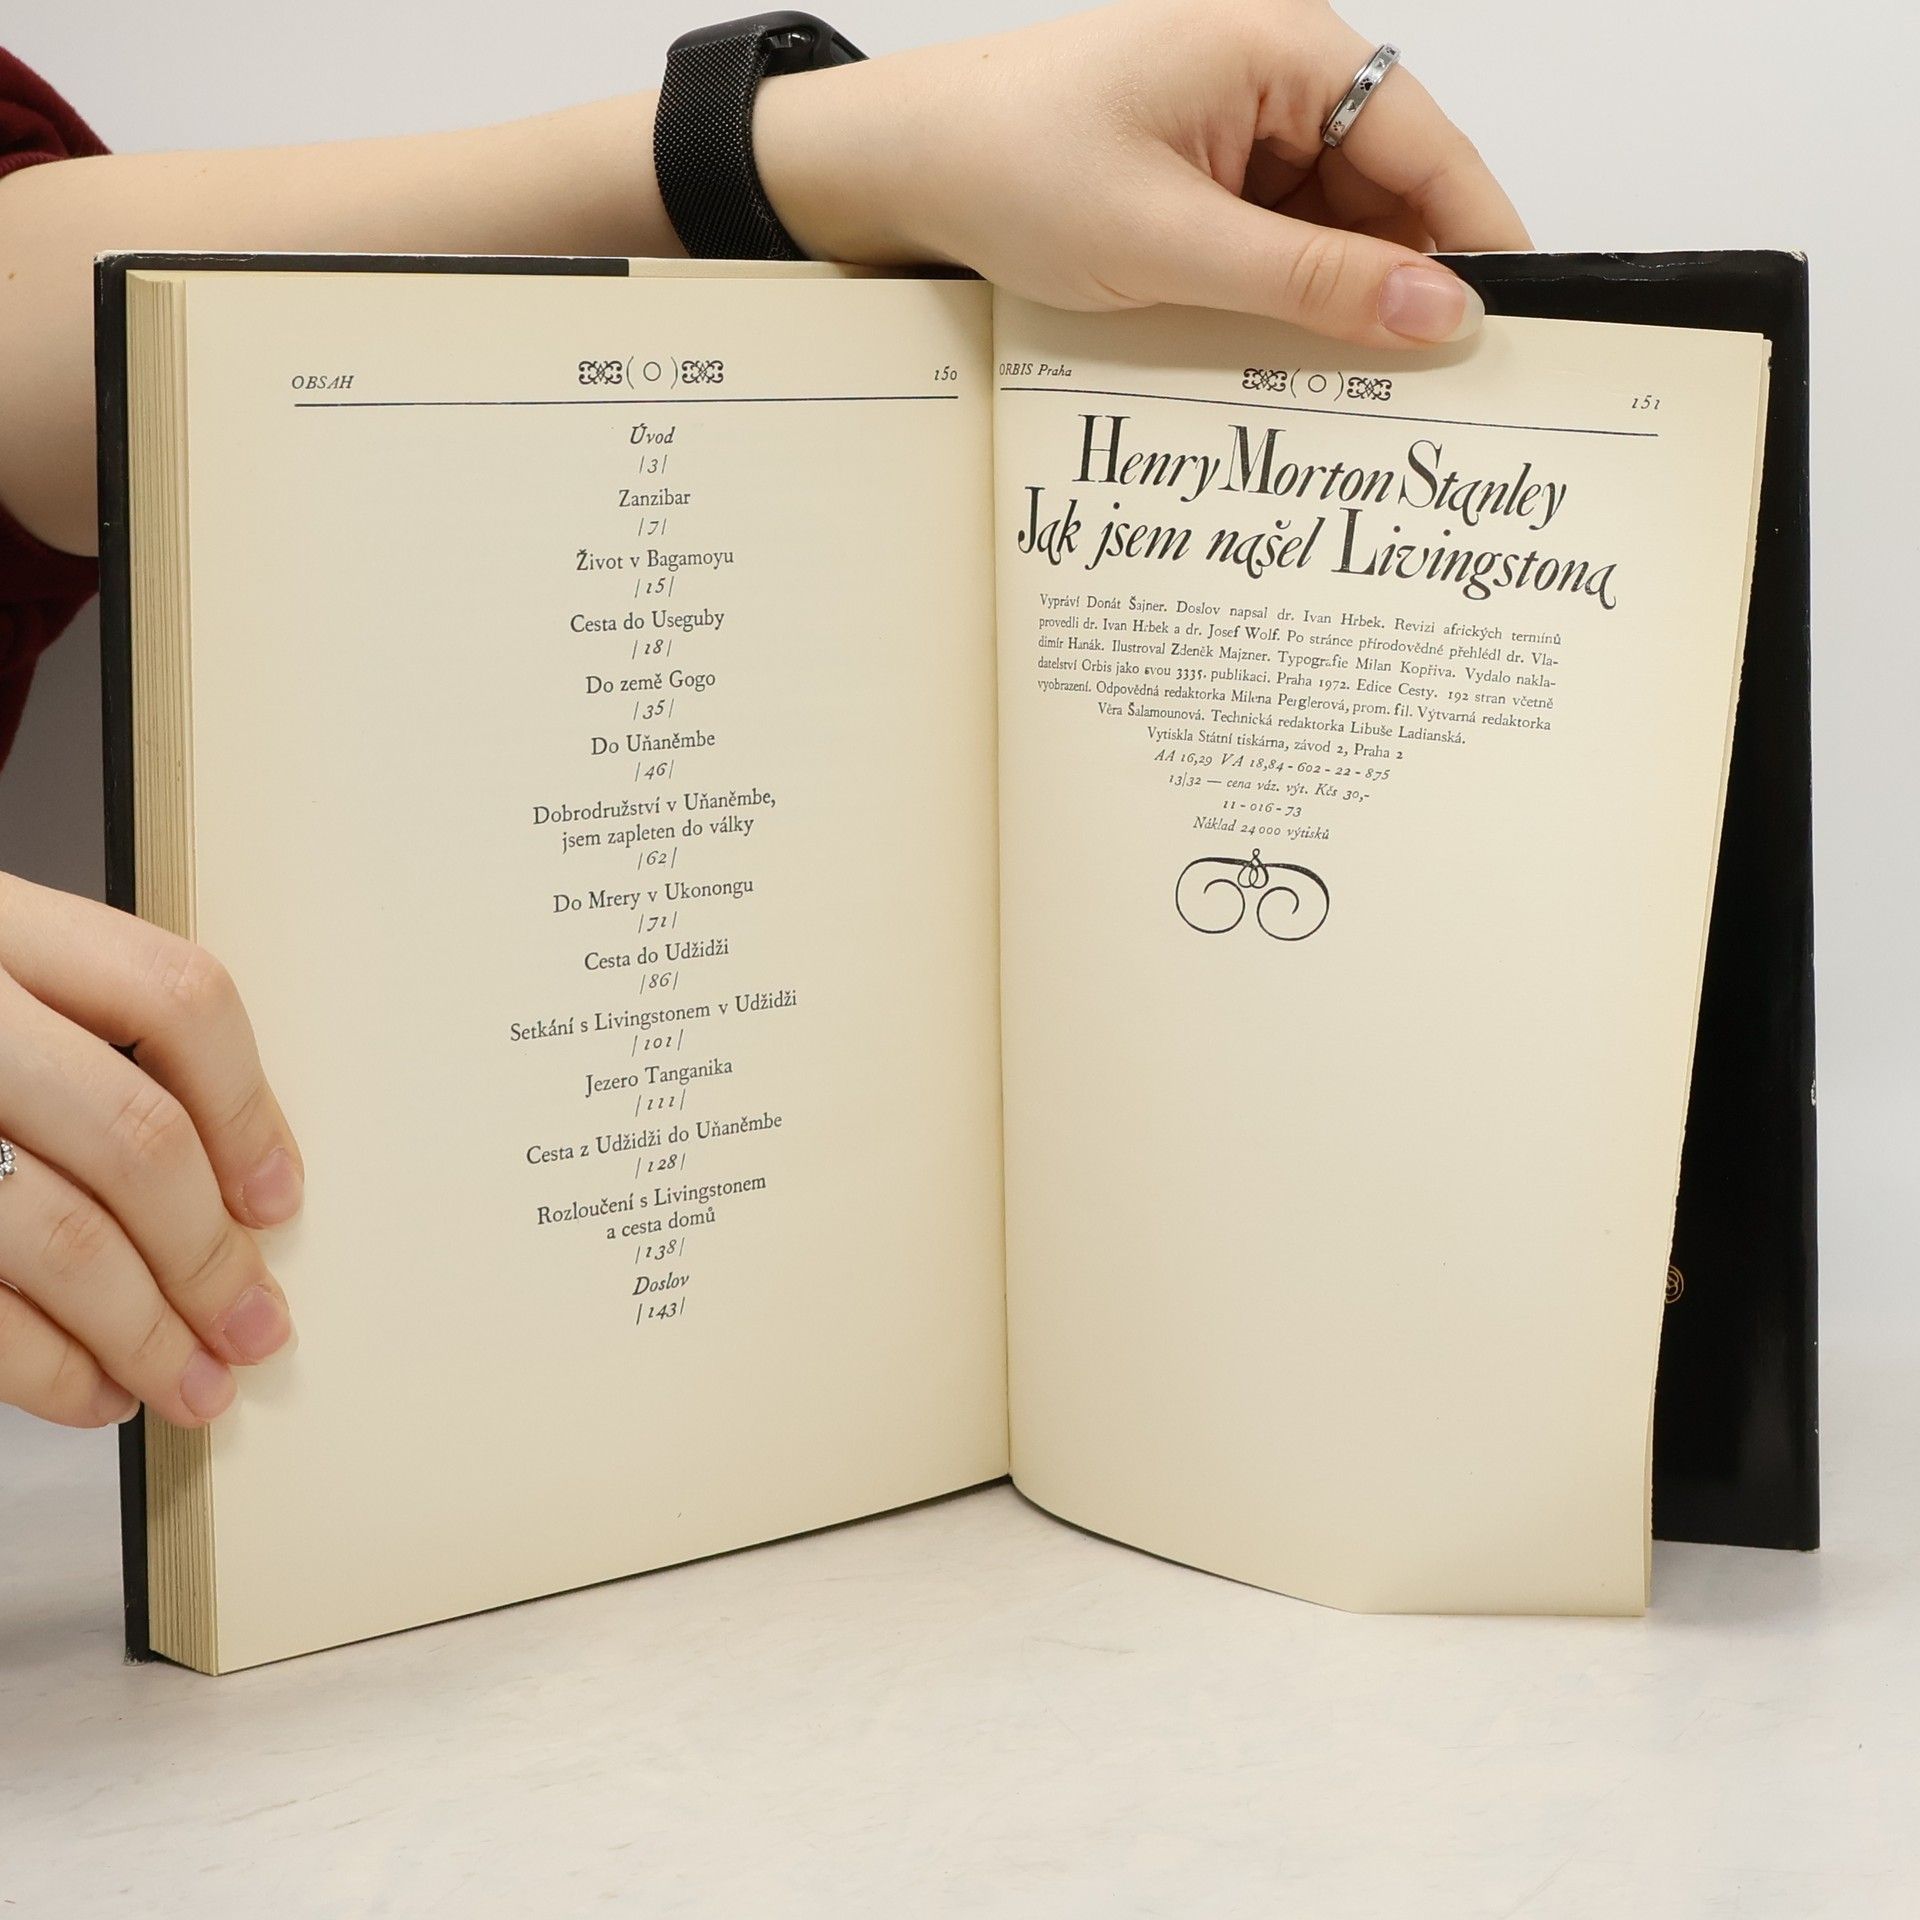 OBSAH 150
Úvod
|3|
Zanzibar
|7|
Život v Bagamoyu
|15|
Cesta do Useguby
|18|
Do země Gogo
|35|
Do Uňaněmbe
|46|
Dobrodružství v Uňaněmbe,
jsem zapleten do války
|62|
Do Mrery v Ukonongu
|71|
Cesta do Udžidži
|86|
Setkání s Livingstonem v Udžidži
|101|
Jezero Tanganika
|111|
Cesta z Udžidži do Uňaněmbe
|128|
Rozloučení s Livingstonem
a cesta domů
|138|
Doslov
|143|
ORBIS Praha 151
Henry Morton Stanley
Jak jsem našel Livingstona
Vypráví Donát Šajner. Doslov napsal dr. Ivan Hrbek. Revizi afrických termínů
provedli dr. Ivan Hrbek a dr. Josef Wolf. Po stránce přírodovědné přehlédl dr. Vla-
dimír Hanák. Ilustroval Zdeněk Majzner. Typografie Milan Kopřiva. Vydalo nakla-
datelství Orbis jako svou 3335. publikaci. Praha 1972. Edice Cesty. 192 stran včetně
vyobrazení. Odpovědná redaktorka Milena Perglerová, prom. fil. Výtvarná redaktorka
Věra Šalamounová. Technická redaktorka Libuše Ladianská.
Vytiskla Státní tiskárna, závod 2, Praha 2
AA 16,29 VA 18,84 - 602 - 22 - 875
13/32 — cena váz. výt. Kčs 30,-
11 - 016 - 73
Náklad 24 000 výtisků